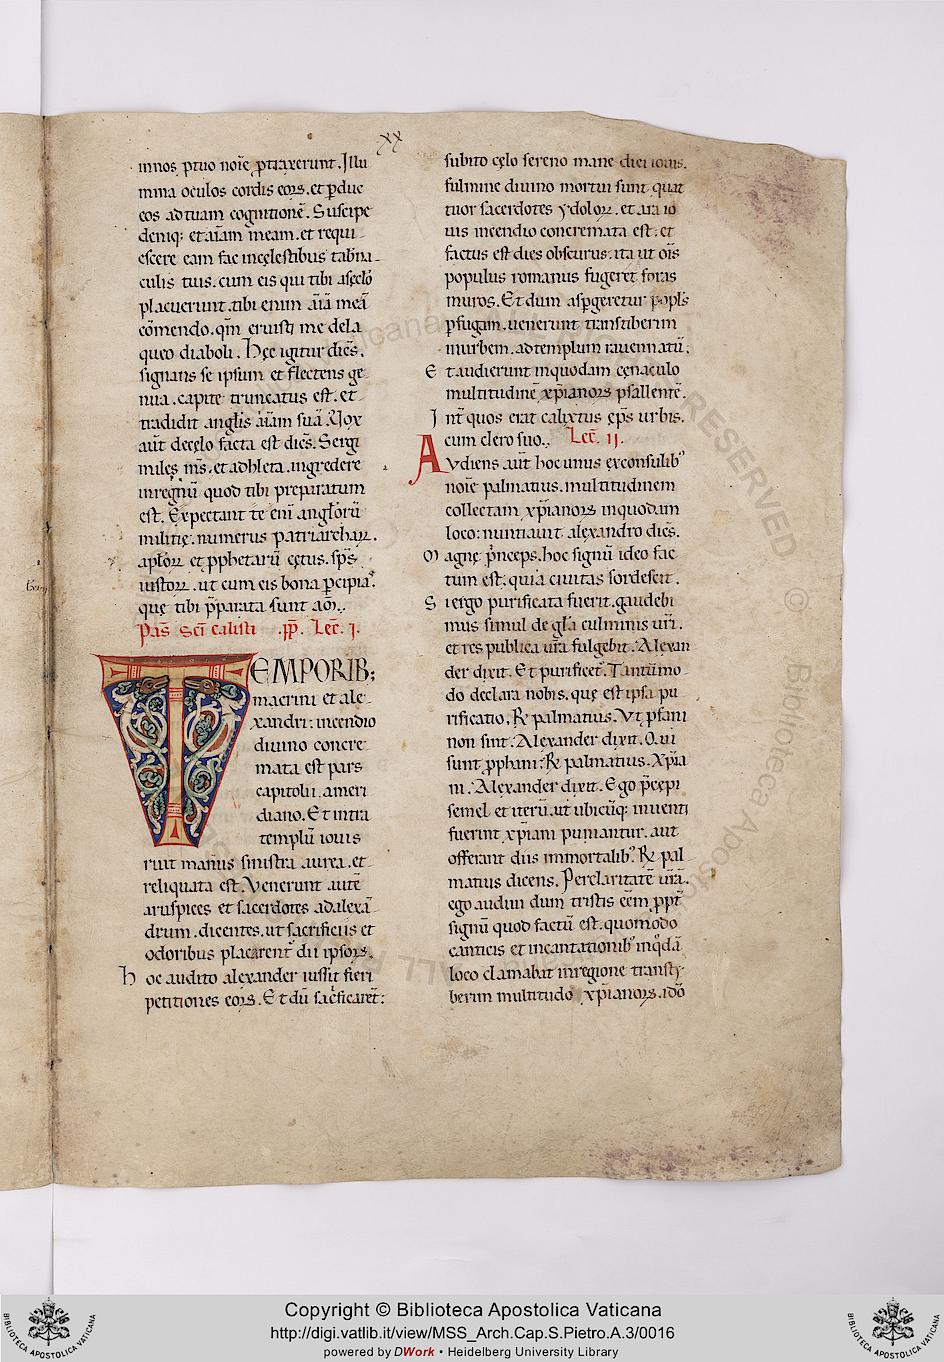 xx
innos ꝑtuo noīe ꝑtraxerunt. Illu
mina oculos cordis eoꝝ. et ꝑduc
eos ad tuam cognitionē. Suscipe
deniq; et aīam meam. et requi-
escere eam fac in cęlestibus tab̄na-
culis tuis. cum eis qui tibi a sęclo
placuerunt. tibi enim aīā meā
cōmendo. qm̄ eruisti me de la
queo diaboli. Hęc igitur dic̄s.
signans se ipsum et flectens ge-
nua. capite truncatus est. et-
tradidit anglis aīam suā. Vox
aūt de cęlo facta est dic̄s. Sergi
miles m̄s. et adhleta. ingredere
in regnū quod tibi preparatum
est. Expectant te enī anglorū
militię. numerus patriarchaꝝ.
apl̄oꝝ et ꝓphetarū cętus. sp̄s
iustoꝝ. ut cum eis bona ꝑcipias.
quę tibi p̄parata sunt am̄.
Pas̄ Sc̄i calisti .pp̄. Lec̄. I.
TEMPORIB;
macrini et ale-
xandri: incendio
diuino concre-
mata est pars
capitolii. ameri
diano. Et intra
templū iouis
ruit manus sinistra aurea. et-
reliquata est. Venerunt autē
aruspices et sacerdotes ad alexā-
drum. dicentes. ut sacrificiis et
odoribus placarent dii ipsoꝝ.
Hoc audito alexander iussit fieri
petitiones eoꝝ. Et dū sacficaret:
subito cęlo sereno mane diei iouis.
fulmine diuino mortui sunt quat
tuor sacerdotes ydoloꝝ. et ara io
uis incendio concremata est: et
factus est dies obscurus. ita ut oīs
populus romanus fugeret foras
muros. Et dum aspgeretur popl̄s
ꝑ fugam. uenerunt transtiberim
in urbem. ad templum rauennatū:
Et audierunt in quodam cęnaculo
multitudinē xp̄ianoꝝ psallentē.
Int̄ quos erat calixtus ep̄s urbis.
cum clero suo. Lec̄. II.
Avdiens aūt hoc unus ex consulib;
noīe palmatius. multitudinem
collectam xp̄ianoꝝ in quodam
loco: nuntiauit alexandro dic̄s.
Magne p̄nceps. hoc signū ideo fac
tum est: quia ciuitas sordescit.
Si ergo purificata fuerit. gaudebi
mus simul de gl̄a culminis ur̄i.
et res publica ur̄a fulgebit. Alexan
der dixit. Et purificet̄. Tantūmo-
do declara nobis. quę est ipsa pu
rificatio. R̄ palmatius. Ut ꝓfani
non sint. Alexander dixit. Qui
sunt ꝓphani? R̄ palmatius. Xp̄ia
ni. Alexander dixit. Ego p̄cepi
semel et iterū. ut ubicūq; inuenti
fuerint xp̄iani puniantur. aut
offerant diis immortalib;. R̄ pal
matius dicens. Per claritatē ur̄ā.
ego audiui dum tristis eēm ꝓpt̄
signū quod factū est. quomodo
canticis et incantationib; in qdā
loco clamabat in regione transty-
berim multitudo xp̄ianoꝝ. idō
Copyright © Biblioteca Apostolica Vaticana
http://digi.vatlib.it/view/MSS_Arch.Cap.S.Pietro.A.3/0016
powered by DWork • Heidelberg University Library
BIBLIOTECA APOSTOLICA VATICANA
BIBLIOTECA APOSTOLICA VATICANA